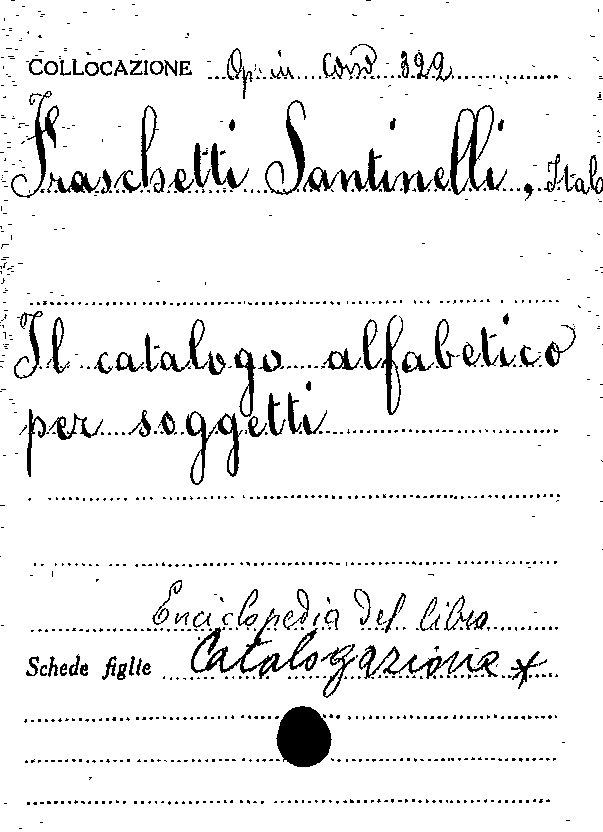 COLLOCAZIONE Op. in Cons 322
Fraschetti Santinelli, Italo
Il catalogo alfabetico
per soggetti
Enciclopedia del libro
Schede figlie Catalogazione *